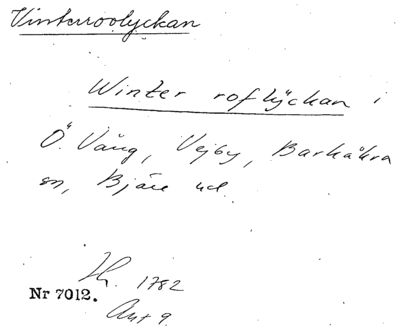 Vinterrovlyckan
Winter roflÿckan i
Ö. Vång, Vejby, Barkåkra
sn, Bjäre hd.
Sk. 1782
Nr 7012.
Akt 9.